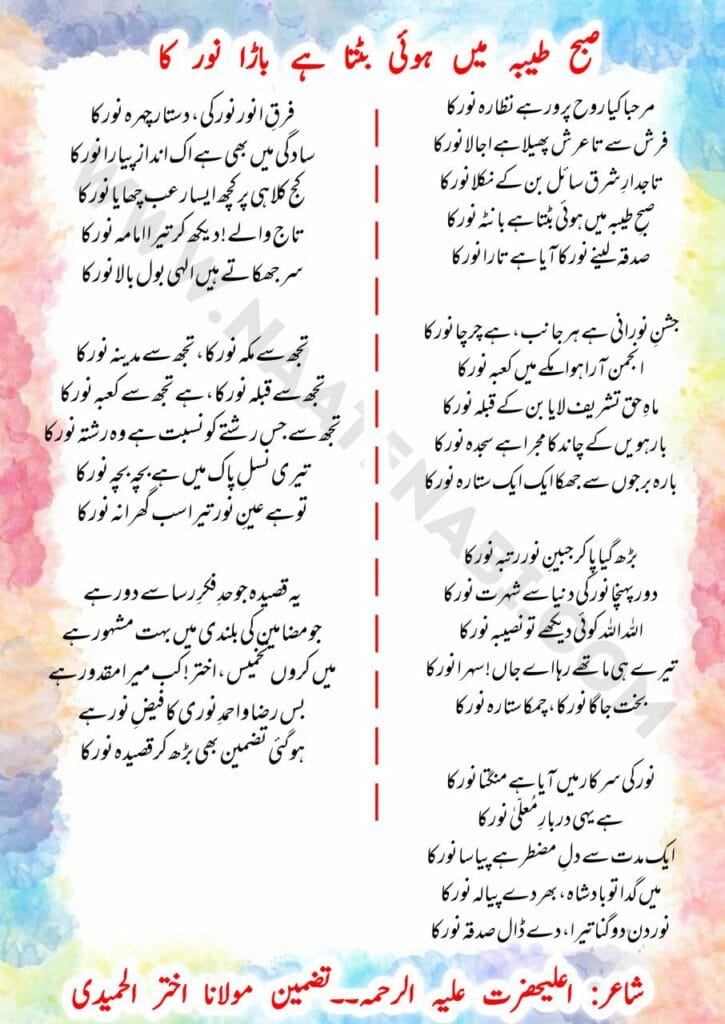 صبح طیبہ میں ہوئی بٹتا ہے باڑا نور کا
مرحبا کیا روح پرور ہے نظارہ نور کا
فرش سے تا عرش پھیلا ہے اجالا نور کا
تاجدارِ شرق سائل بن کے نکلا نور کا
صبحِ طیبہ میں ہوئی بٹتا ہے بانٹہ نور کا
صدقہ لینے نور کا آیا ہے تارا نور کا
جشنِ نورانی ہے ہر جانب، ہے چرچا نور کا
انجمن آرا ہوا مکے میں کعبہ نور کا
ماہِ حق تشریف لایا بن کے قبلہ نور کا
بارہویں کے چاند کا مجرا ہے سجدہ نور کا
بارہ برجوں سے جھکا ایک ایک ستارہ نور کا
بڑھ گیا پا کر جبینِ نور رتبہ نور کا
دور پہنچا نور کی دنیا سے شہرت نور کا
اللہ اللہ کوئی دیکھے تو نصیبہ نور کا
تیرے ہی ماتھے رہا اے جاں! سہرا نور کا
بخت جاگا نور کا، چمکا ستارہ نور کا
نور کی سرکار میں آیا ہے منگتا نور کا
ہے یہی دربارِ مُعلّیٰ نور کا
ایک مدت سے دلِ مضطر ہے پیاسا نور کا
میں گدا تو بادشاہ، بھر دے پیالہ نور کا
نور دن دو گنا تیرا، دے ڈال صدقہ نور کا
فرقِ انور نور کی، دستار چہرہ نور کا
سادگی میں بھی ہے اک انداز پیارا نور کا
کج کلاہی پر کچھ ایسا رعب چھایا نور کا
تاج والے! دیکھ کر تیرا امامہ نور کا
سر جھکاتے ہیں الٰہی بول بالا نور کا
تجھ سے مکہ نور کا، تجھ سے مدینہ نور کا
تجھ سے قبلہ نور کا، ہے تجھ سے کعبہ نور کا
تجھ سے جس رشتے کو نسبت ہے وہ رشتہ نور کا
تیری نسلِ پاک میں ہے بچہ بچہ نور کا
تو ہے عینِ نور تیرا سب گھرانہ نور کا
یہ قصیدہ جو حدِ فکرِ رسا سے دور ہے
جو مضامین کی بلندی میں بہت مشہور ہے
میں کروں تخمیس، اختر! کب میرا مقدور ہے
بس رضا و احمدِ نوری کا فیضِ نور ہے
ہو گئی تضمین بھی بڑھ کر قصیدہ نور کا
شاعر: اعلیٰحضرت علیہ الرحمہ۔۔تضمین مولانا اختر الحمیدی
WWW.NAATENABI.COM